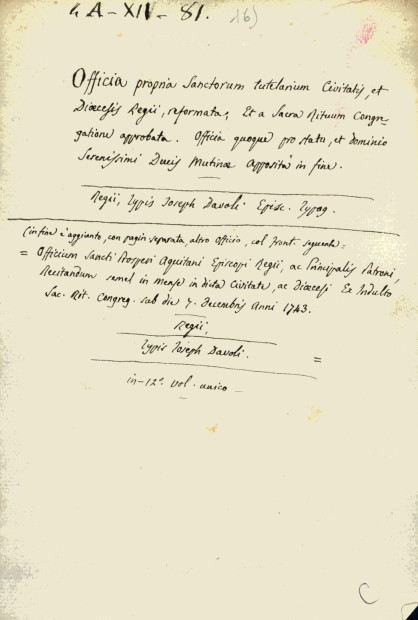 4 A-XIV-81. 16)
Officia propria Sanctorum tutelarium Civitatis, et
Diœcesis Regii, reformata, Et a Sacra Rituum Congre-
gatione approbata. Officia quoque pro statu, et dominio
Serenissimi Ducis Mutinæ Apposita in fine.
Regii, Typis Joseph Davoli Episc. Typog.
(in fine è aggiunto, con pagin separata, altro Officio, col front. seguente=
= Officium Sancti Prosperi Aquitani Episcopi Regii, ac Principalis Patroni,
Recitandum semel in mense in dicta Civitate, ac Diœcesi Ex Indulto
Sac. Rit. Congreg. sub die 7. decembris Anni 1743.
Regii,
Typis Joseph Davoli. =
in-12º vol. unico
C